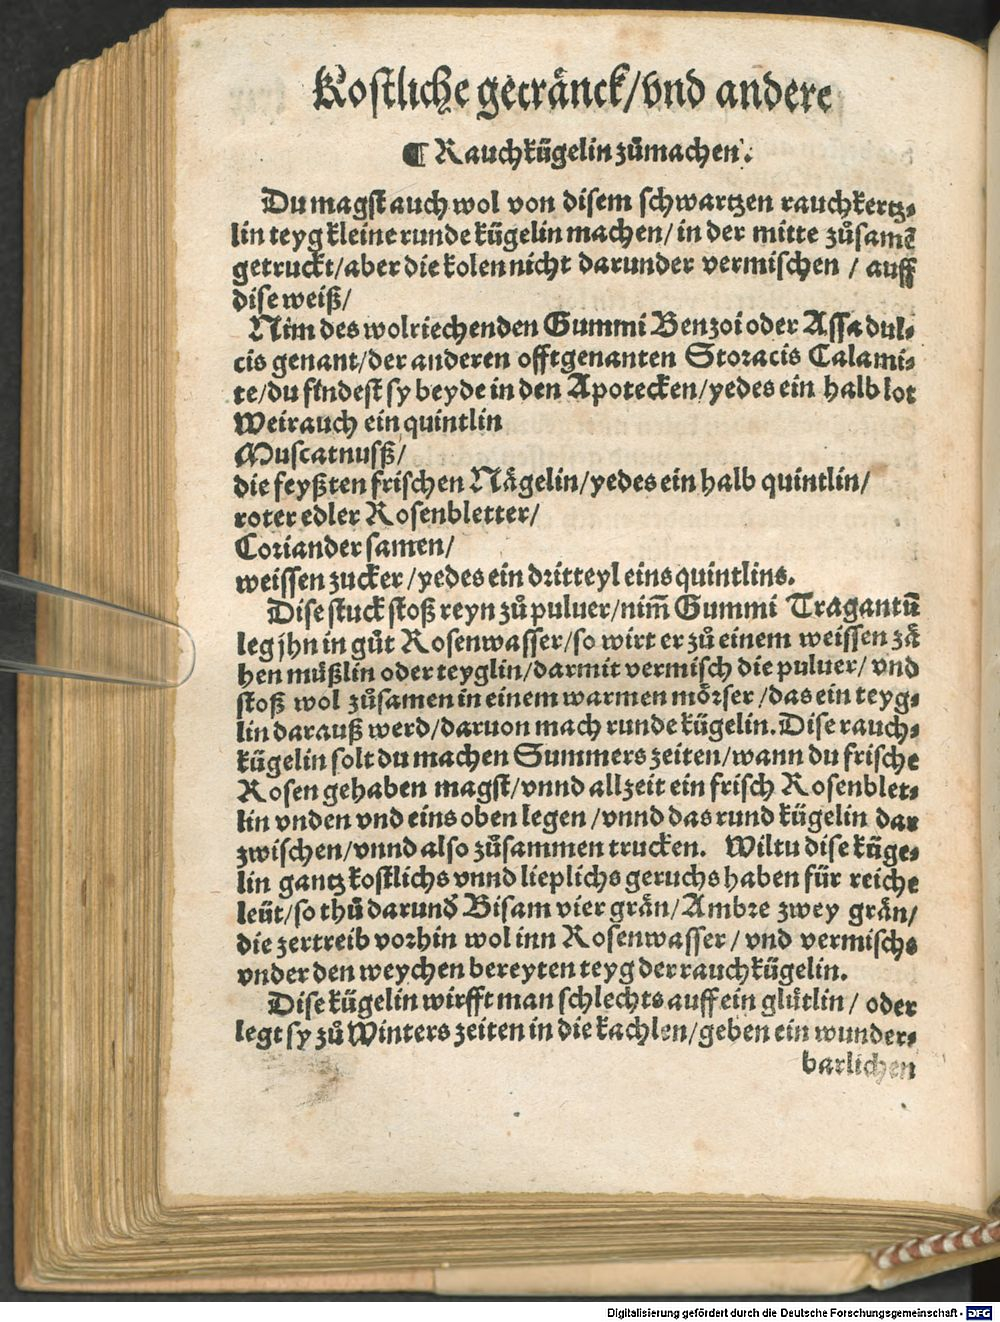 Kostliche getränck/vnd andere
¶ Rauchkügelin zůmachen.
Du magst auch wol von disem schwartzen rauchkertz⸗
lin teyg kleine runde kügelin machen/ in der mitte zůsamē
getruckt/aber die kolen nicht darunder vermischen / auff
dise weiß/
Nim des wolriechenden Gummi Benzoi oder Assa dul⸗
cis genant/der anderen offtgenanten Storacis Calami⸗
te/du findest sy beyde in den Apotecken/yedes ein halb lot
Weirauch ein quintlin
Muscatnusß/
die feyßten frischen Nägelin/yedes ein halb quintlin/
roter edler Rosenbletter/
Coriander samen/
weissen zucker/yedes ein dritteyl eins quintlins.
Dise stuck stoß reyn zů puluer/nim̃ Gummi Tragantū
leg jhn in gůt Rosenwasser/so wirt er zů einem weissen zä
hen můßlin oder teyglin/darmit vermisch die puluer/ vnd
stoß wol zůsamen in einem warmen mörser /das ein teyg⸗
lin darauß werd/daruon mach runde kügelin. Dise rauch⸗
kügelin solt du machen Summers zeiten/wann du frische
Rosen gehaben magst/vnnd allzeit ein frisch Rosenblet⸗
lin vnden vnd eins oben legen /vnnd das rund kügelin dar
zwischen/vnnd also zůsammen trucken. Wiltu dise küge⸗
lin gantz kostlichs vnnd lieplichs geruchs haben für reiche
leüt/so thů darund̕ Bisam vier grän/Ambre zwey grän/
die zertreib vorhin wol inn Rosenwasser/ vnd vermischs
vnder den weychen bereyten teyg der rauchkügelin.
Dise kügelin wirfft man schlechts auff ein glůtlin/ oder
legt sy zů Winters zeiten in die kachlen/geben ein wunder⸗
barlichen
Digitalisierung gefördert durch die Deutsche Forschungsgemeinschaft - DFG